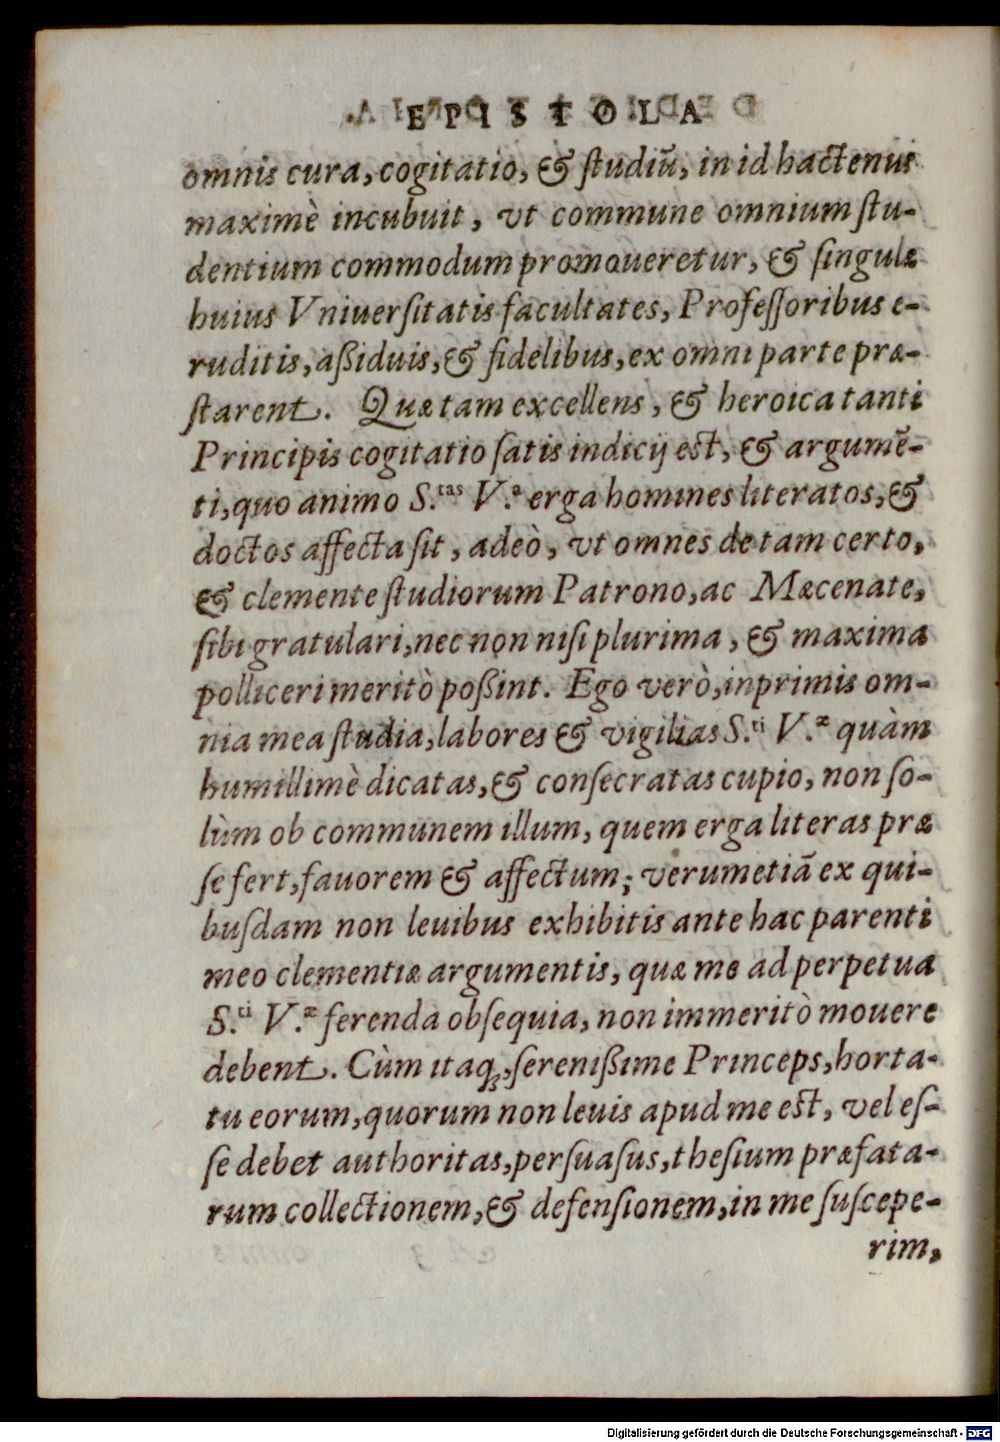 EPISTOLA
omnis cura, cogitatio, & ſtudiũ, in id hactenus
maximè incubuit, vt commune omnium ſtu-
dentium commodum promoueretur, & ſingulæ
huius Vniuerſitatis facultates, Profeſſoribus e-
ruditis, aßiduis, & fidelibus, ex omni parte præ-
ſtarent. Quæ tam excellens, & heroica tanti
Principis cogitatio ſatis indicij est, & argumē-
ti, quo animo S.tas V.a erga homines literatos, &
doctos affecta ſit, adeò, vt omnes de tam certo,
& clemente ſtudiorum Patrono, ac Mæcenate,
ſibi gratulari, nec non niſi plurima, & maxima
polliceri meritò poßint. Ego verò, inprimis om-
nia mea ſtudia, labores & vigilias S.ti V.æ quàm
humillimè dicatas, & conſecratas cupio, non ſo-
lùm ob communem illum, quem erga literas præ
ſe fert, fauorem & affectum; verumetiã ex qui-
buſdam non leuibus exhibitis ante hac parenti
meo clementiæ argumentis, quæ me ad perpetua
S.ti V.æ ferenda obſequia, non immeritò mouere
debent. Cùm itaq;, ſerenißime Princeps, horta-
tu eorum, quorum non leuis apud me est, vel eſ-
ſe debet authoritas, perſuaſus, theſium præfata-
rum collectionem, & defenſionem, in me ſuſcepe-
rim,
Digitalisierung gefördert durch die Deutsche Forschungsgemeinschaft - DFG